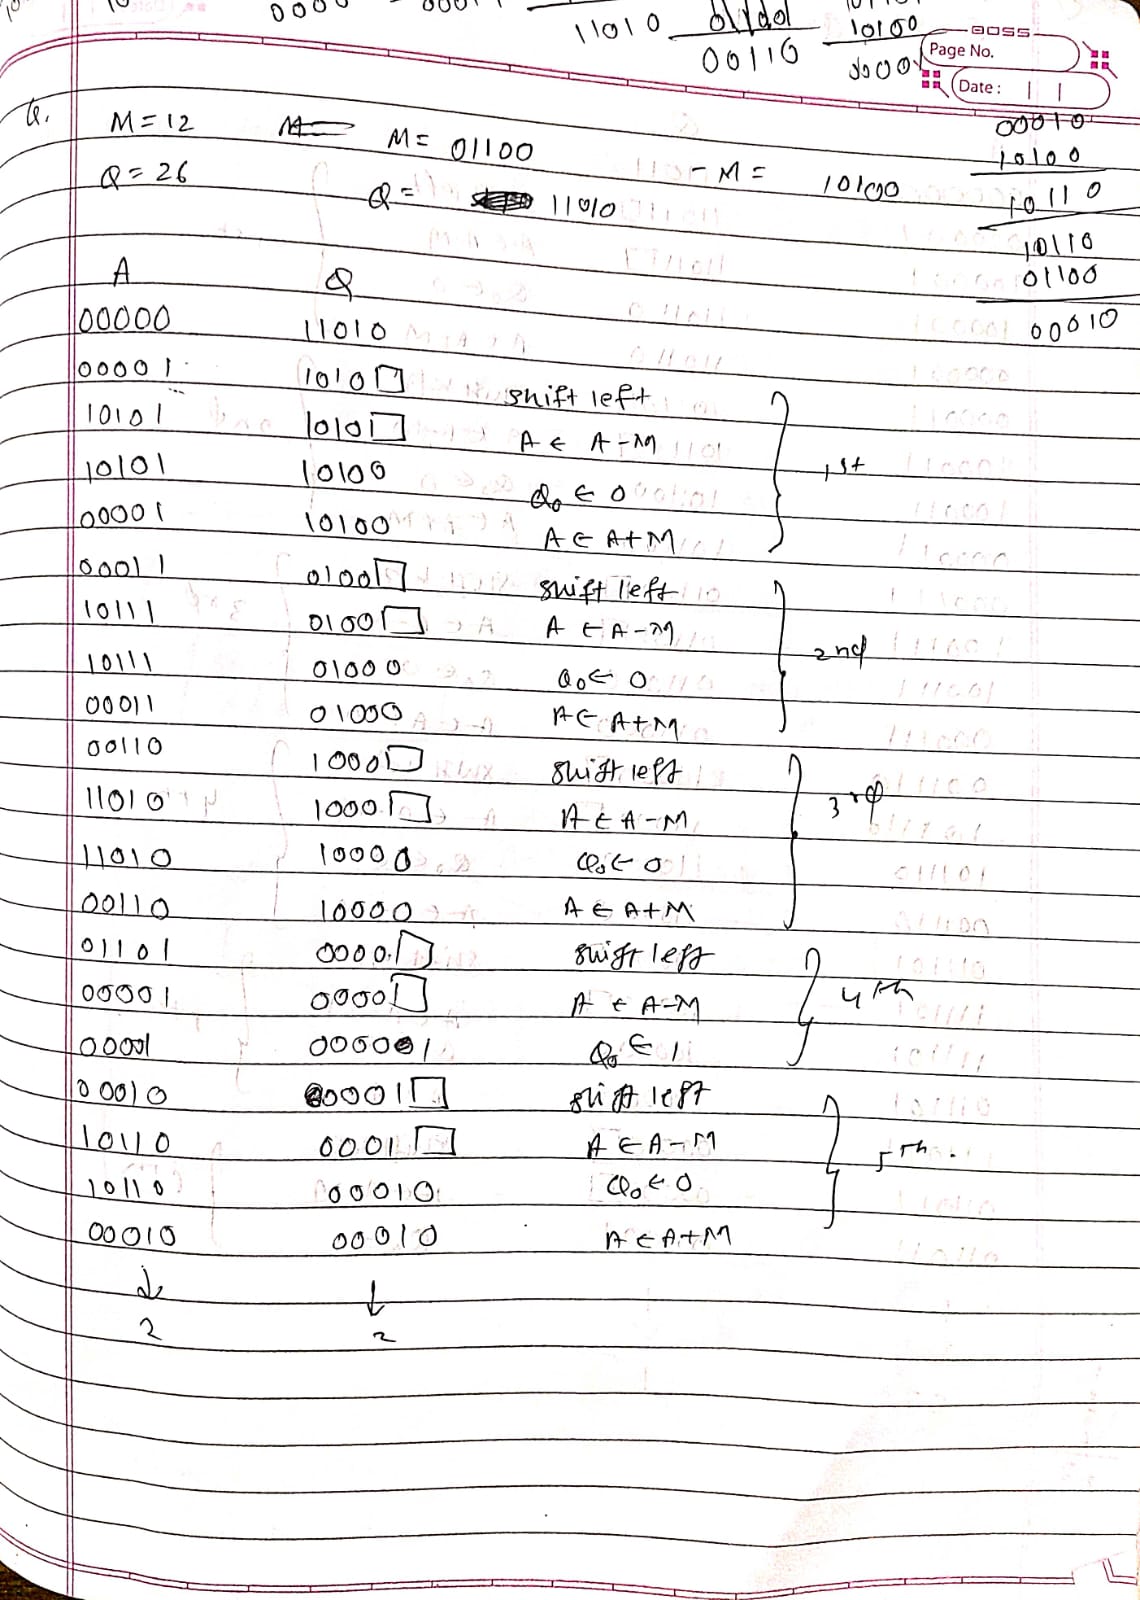 0000
11010
00110
10100
BOSS
Page No.
Date :
Q.
M = 12
M = 01100
- M = 10100
Q = 26
Q = 11010
00010
10100
10110
10110
01100
00010
A Q
00000 11010
00001 1010□ shift left
10101 1010□ A ← A - M 1st
10101 10100 Q₀ ← 0
00001 10100 A ← A + M
00011 0100□ shift left
10111 0100□ A ← A - M 2nd
10111 01000 Q₀ ← 0
00011 01000 A ← A + M
00110 1000□ shift left
11010 1000□ A ← A - M 3rd
11010 10000 Q₀ ← 0
00110 10000 A ← A + M
01101 0000□ shift left
00001 0000□ A ← A - M 4th
00001 000001 Q₀ ← 1
00010 0001□ shift left
10110 0001□ A ← A - M 5th.
10110 00010 Q₀ ← 0
00010 00010 A ← A + M
↓ ↓
2 2